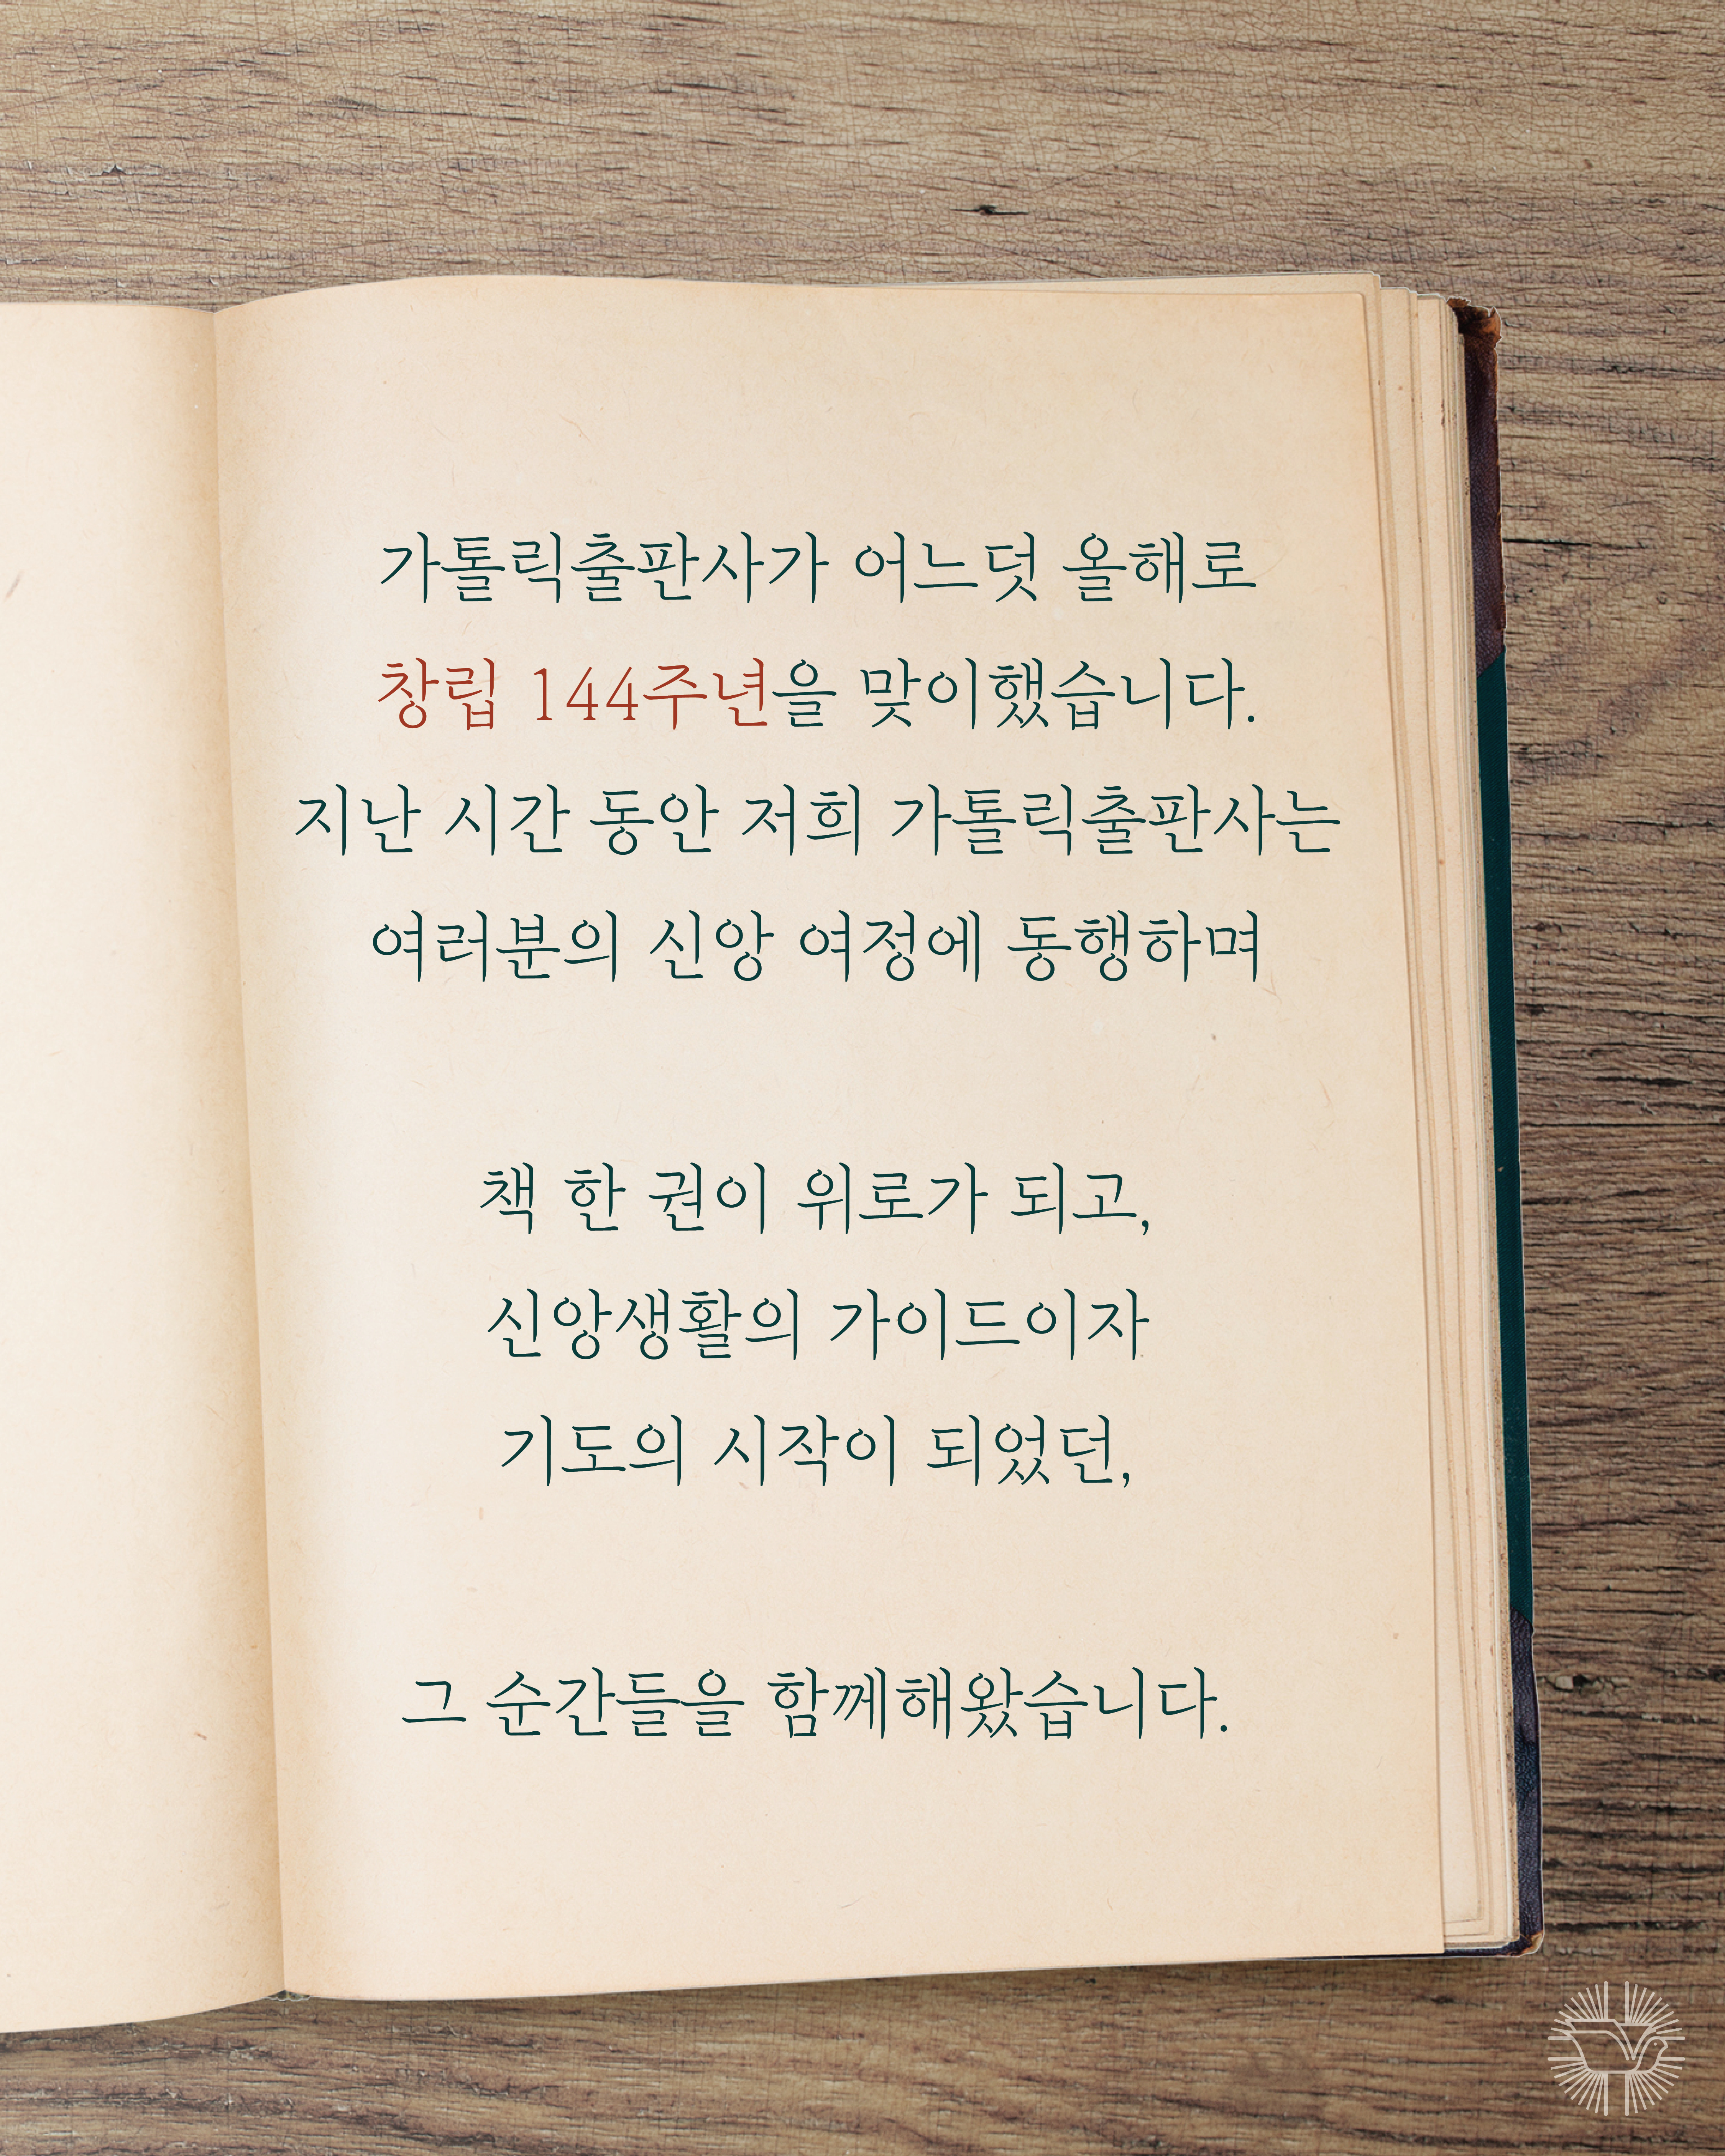 가톨릭출판사가 어느덧 올해로
창립 144주년을 맞이했습니다.
지난 시간 동안 저희 가톨릭출판사는
여러분의 신앙 여정에 동행하며
책 한 권이 위로가 되고,
신앙생활의 가이드이자
기도의 시작이 되었던,
그 순간들을 함께해왔습니다.